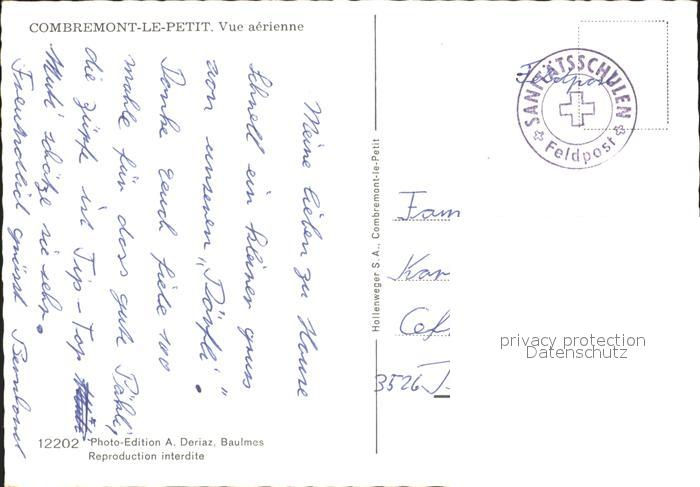 COMBREMONT-LE-PETIT. Vue aérienne
Meine lieben zu Hause
Schnell ein kleiner gruss
von unserem „Dörfli".
Danke Euch
für dass gute
die ist Tip-Top
Muti schätze sie sehr.
Freundlich grüsst
12202 Photo-Edition A. Deriaz, Baulmes
Reproduction interdite
Hollenweger S. A., Combremont-le-Petit
Feldpost
SANITÄTSSCHULEN
Feldpost
Fam
Kar
3526
privacy protection
Datenschutz